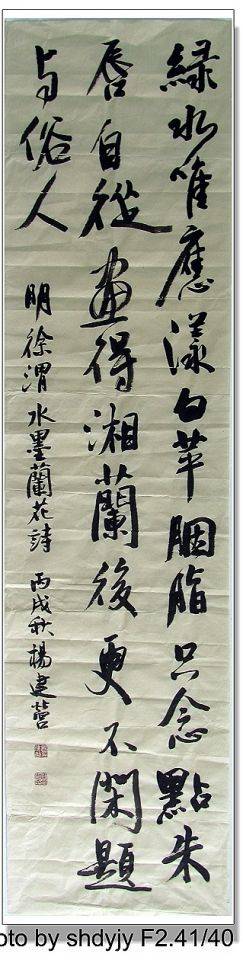 緑水唯應漾白苹胭脂只念點朱
唇自從画得湘蘭後更不閑題
与俗人
明徐渭水墨蘭花詩 丙戌秋楊建營
oto by shdyjy F2.41/40